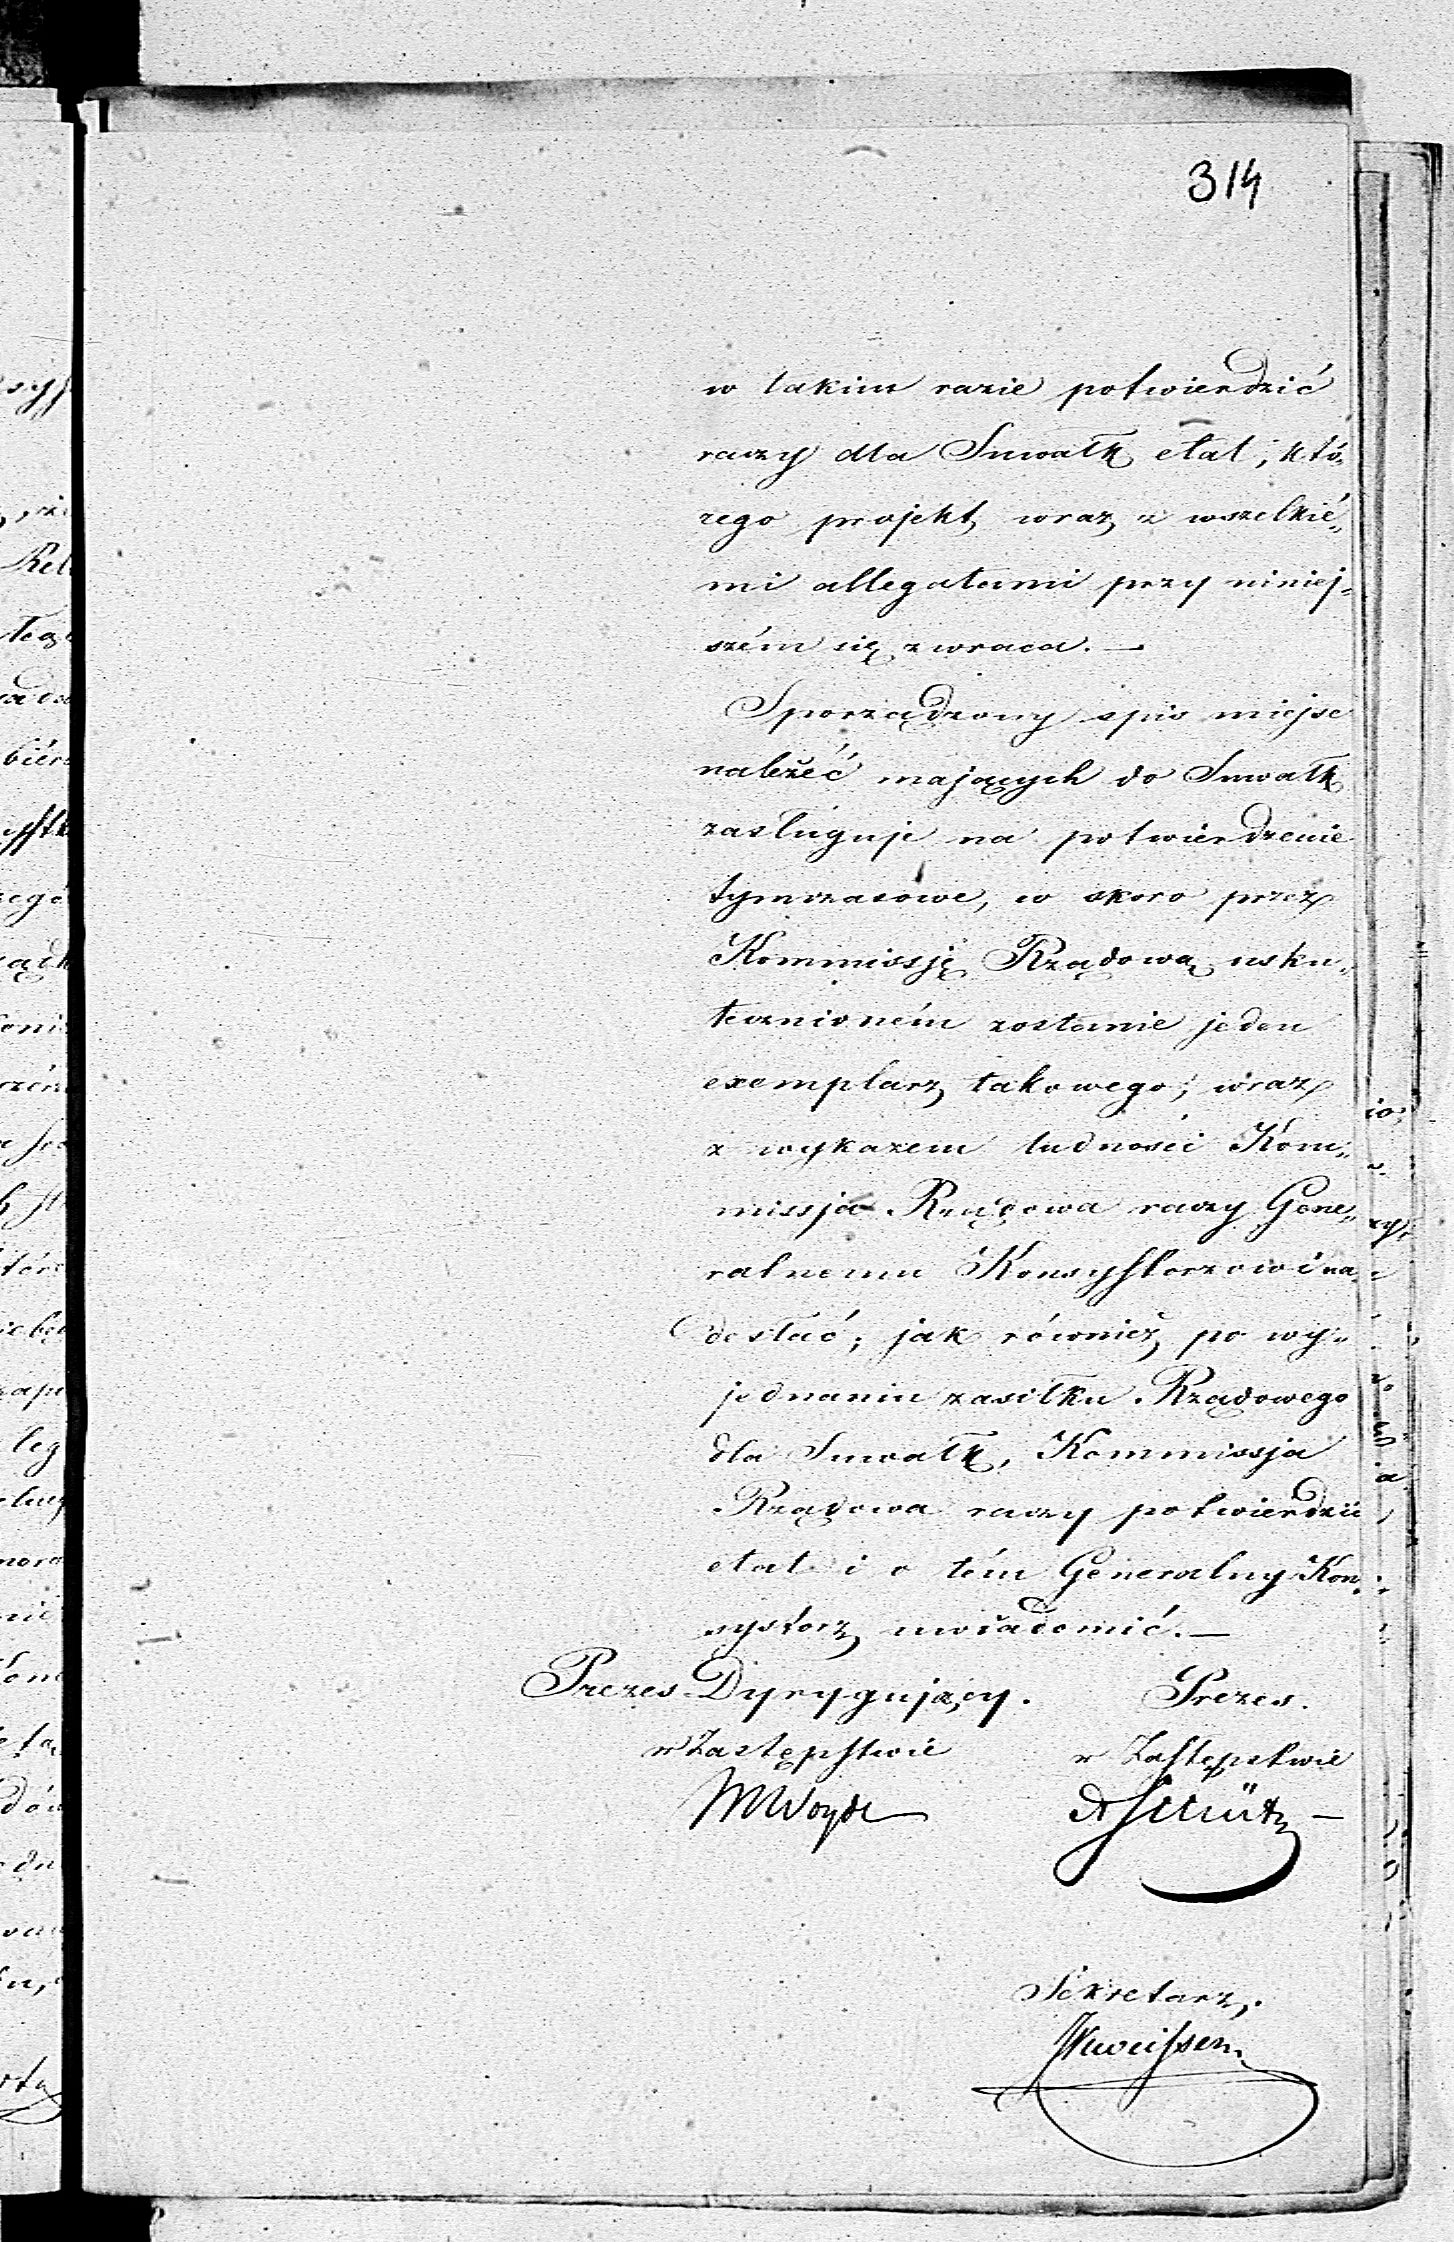 314
w takim razie potwierdzić
raczy dla Suwałk etat, któ„
rego projekt wraz z wszelkié„
mi allegatami przy niniej„
szém się zwraca. —
Sporządzony spis miejsc
należéć mających do Suwałk
zasługuje na potwierdzenie
tymczasowe, w skoro przez
Kommissję Rządową usku„
tecznioném zostanie jeden
exemplarz takowego, wraz
z wykazem ludności Kom„
missja Rządowa raczy Gene„
ralnemu Konsystorzowi na„
desłać; jak również po wy„
jednaniu zasiłku Rządowego
dla Suwałk, Kommissja
Rządowa raczy potwierdzić
etat i o tém Generalny Kon„
systorz uwiadomić. —
Prezes Dyrygujący. Prezes.
w Zastępstwie w Zastępstwie
Sekretarz.